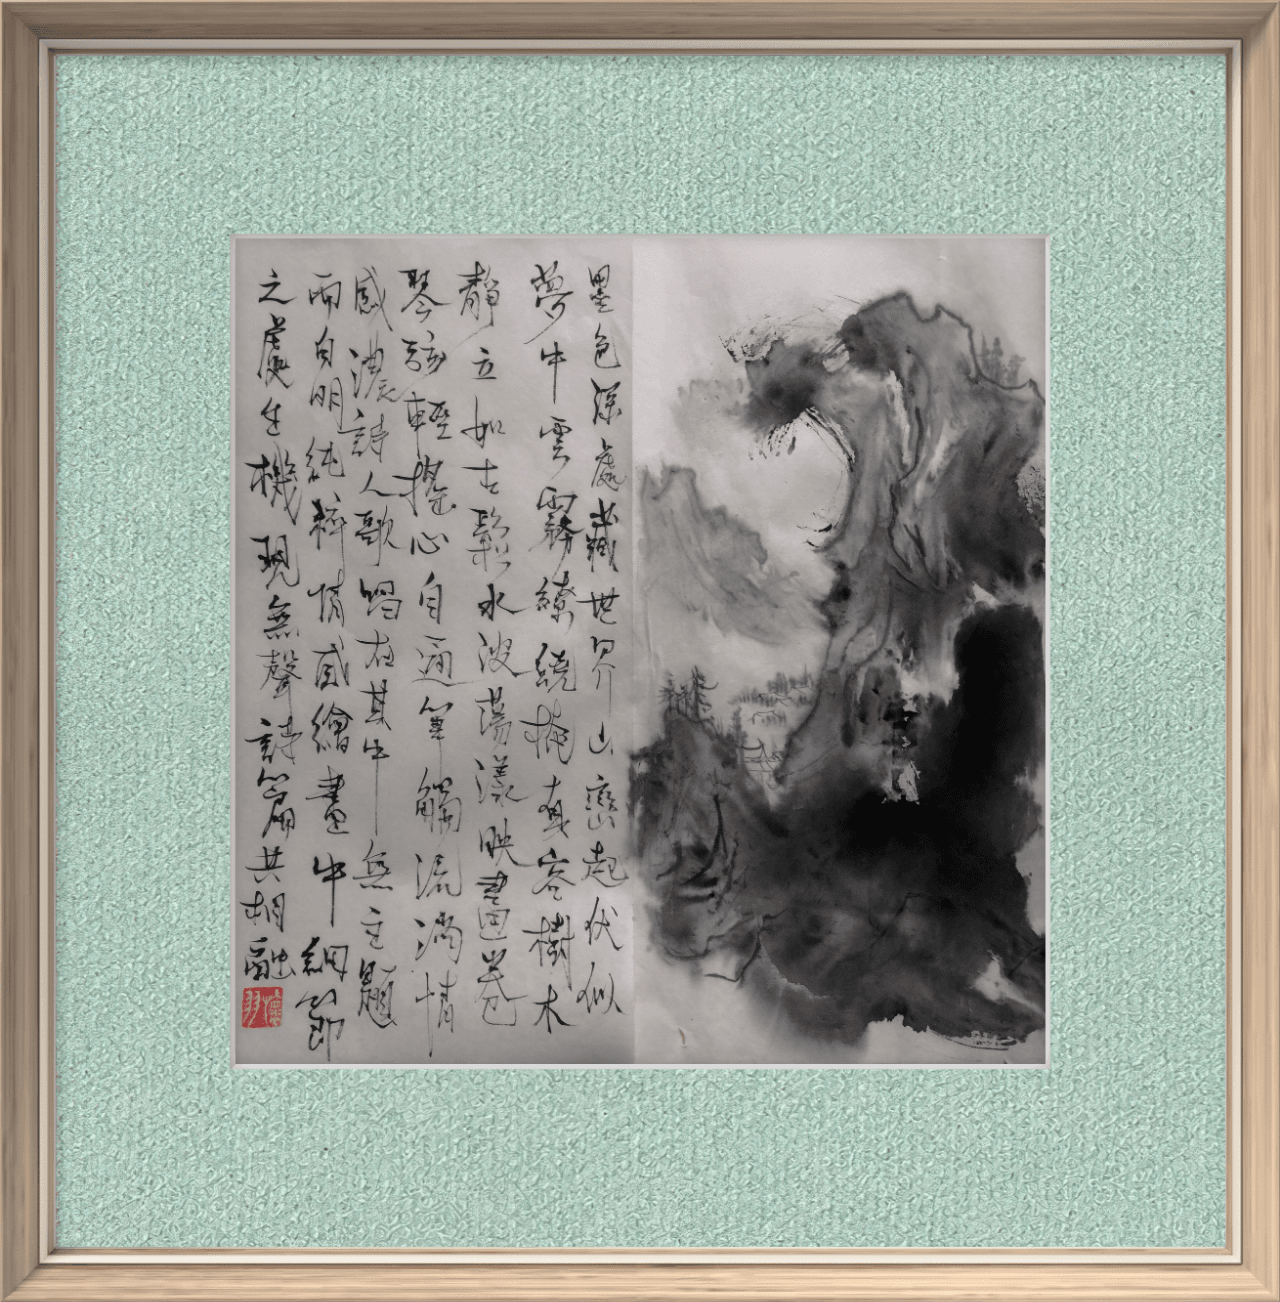 墨色深處藏世界山巒起伏似
夢中雲霧繚繞掩真容樹木
靜立如古鬆水波蕩漾映畫卷
琴弦輕搖心自通筆觸流淌情
感濃詩人歌唱在其中無主題
而自明純粹情感繪畫中細節
之處生機現無聲詩篇共相融